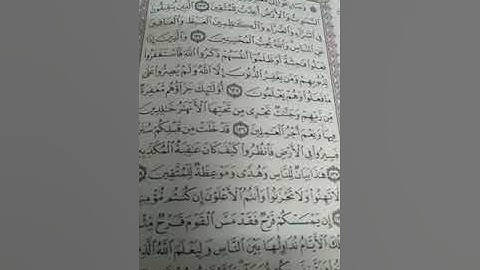 ٱلسَّمَٰوَٰتُ وَٱلْأَرْضُ أُعِدَّتْ لِلْمُتَّقِينَ ١٣٣ ٱلَّذِينَ يُنفِقُونَ
فِى ٱلسَّرَّآءِ وَٱلضَّرَّآءِ وَٱلْكَٰظِمِينَ ٱلْغَيْظَ وَٱلْعَافِينَ
عَنِ ٱلنَّاسِ وَٱللَّهُ يُحِبُّ ٱلْمُحْسِنِينَ ١٣٤ وَٱلَّذِينَ إِذَا
فَعَلُوا۟ فَٰحِشَةً أَوْ ظَلَمُوٓا۟ أَنفُسَهُمْ ذَكَرُوا۟ ٱللَّهَ فَٱسْتَغْفَرُوا۟
لِذُنُوبِهِمْ وَمَن يَغْفِرُ ٱلذُّنُوبَ إِلَّا ٱللَّهُ وَلَمْ يُصِرُّوا۟ عَلَىٰ
مَا فَعَلُوا۟ وَهُمْ يَعْلَمُونَ ١٣٥ أُو۟لَٰٓئِكَ جَزَآؤُهُم مَّغْفِرَةٌ
مِّن رَّبِّهِمْ وَجَنَّٰتٌ تَجْرِى مِن تَحْتِهَا ٱلْأَنْهَٰرُ خَٰلِدِينَ
فِيهَا وَنِعْمَ أَجْرُ ٱلْعَٰمِلِينَ ١٣٦ قَدْ خَلَتْ مِن قَبْلِكُمْ سُنَنٌ
فَسِيرُوا۟ فِى ٱلْأَرْضِ فَٱنظُرُوا۟ كَيْفَ كَانَ عَٰقِبَةُ ٱلْمُكَذِّبِينَ
هَٰذَا بَيَانٌ لِّلنَّاسِ وَهُدًى وَمَوْعِظَةٌ لِّلْمُتَّقِينَ
وَلَا تَهِنُوا۟ وَلَا تَحْزَنُوا۟ وَأَنتُمُ ٱلْأَعْلَوْنَ إِن كُنتُم مُّؤْمِنِينَ
إِن يَمْسَسْكُمْ قَرْحٌ فَقَدْ مَسَّ ٱلْقَوْمَ قَرْحٌ مِّثْلُهُ
وَتِلْكَ ٱلْأَيَّامُ نُدَاوِلُهَا بَيْنَ ٱلنَّاسِ وَلِيَعْلَمَ ٱللَّهُ ٱلَّذِينَ